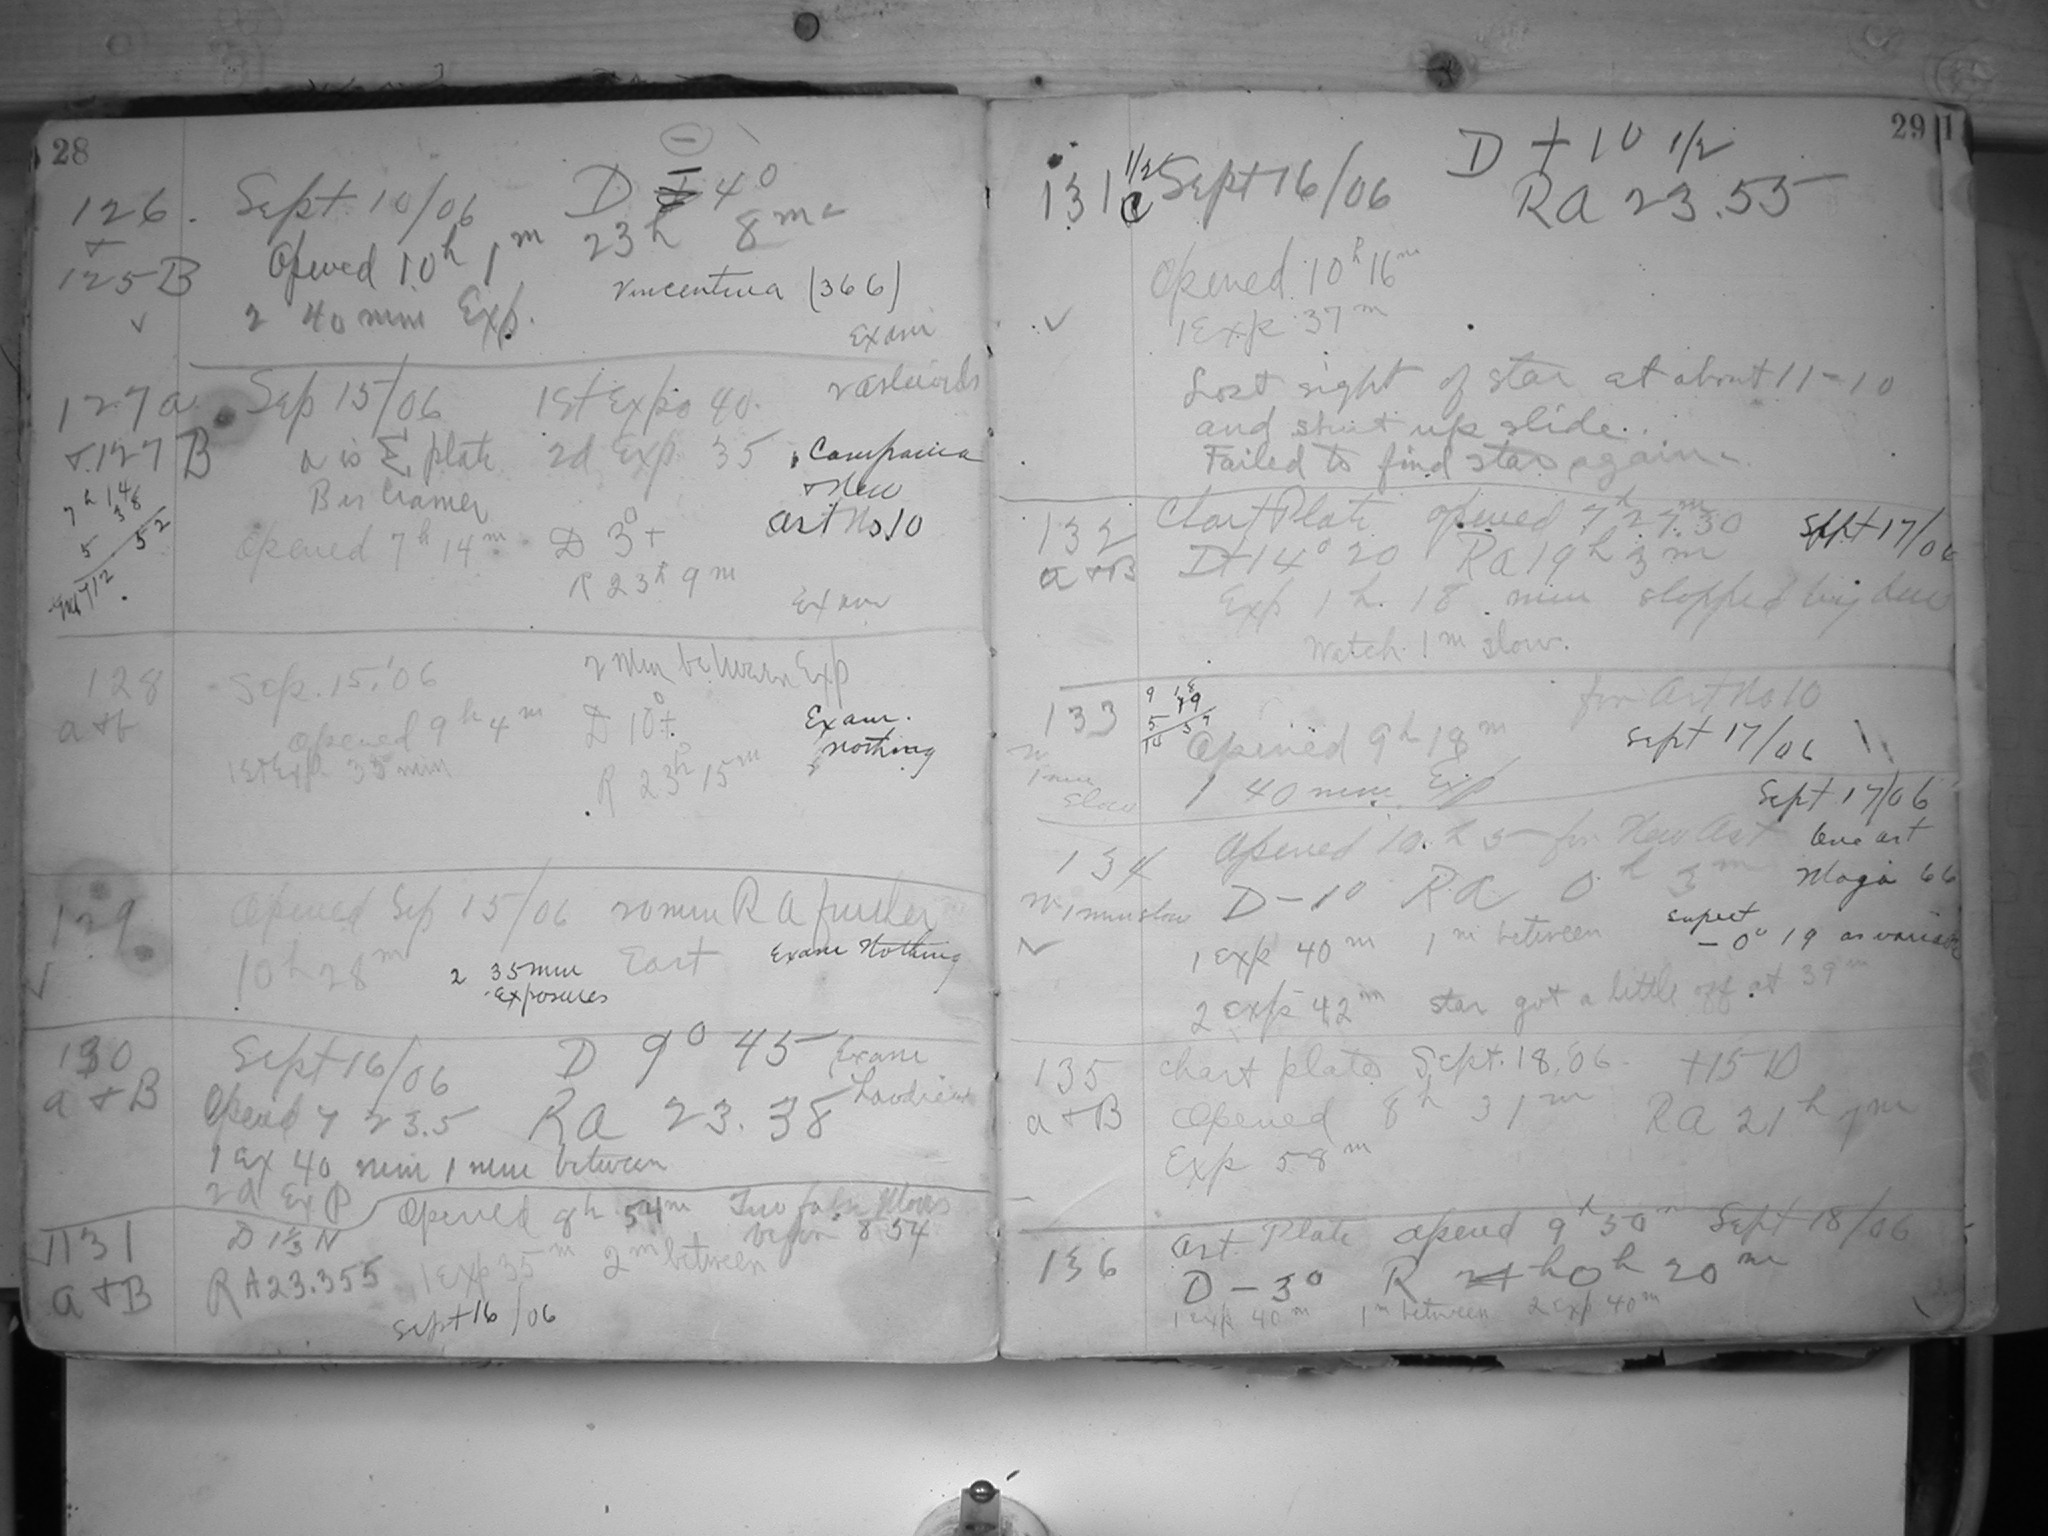 28
126. Sept. 10/06 D - 4°
+
125B Opened 10h 1m 23h 8m
2 40 min Exp. Vincentina (366)
Exam
127a Sep 15/06 1st Exp 40.
2 asteroids
+ 127 B a is Σ plate 2d Exp. 35 Campania
+ New
B is Cramer Ast No 10
7h 14
38
5 52
Opened 7h 14m D 3° +
R 23h 9m
Exam
2 Min between Exp
128 Sep. 15, '06
a + b Opened 9h 4m D 10° +
Exam.
nothing
1st Exp. 35 min R 23h 15m
129 Opened Sep 15/06 20 min RA further
10h 28m 2 35 min East Exam Nothing
Exposures
130 Sept 16/06 D 9° 45 Exam
a + B Opened 7 23.5 RA 23.38
1 Ex 40 min 1 min between
2d Exp
131 Opened 8h 54m
D 1 1/3 N before 8 54
a + B RA 23.355 1 Exp 35m 2m between
Sept 16/06
29
131 1/2 Sept 16/06 D + 10 1/2
c RA 23.55
Opened 10h 16m
1 Exp 37m
Lost sight of star at about 11-10
and shut up slide.
Failed to find star again.
132 Chart Plate opened 7h 27m.30 Sept 17/06
a + B D + 14° 20 RA 19h 3m
Exp 1h. 18 min stopped by dew
Watch 1m slow.
133 for Ast No 10
Opened 9h 18m Sept 17/06
W 1 min slow
1 40 min Exp
Sept 17/06
134 Opened 10.h 5 for New Ast One ast
W 1 min slow D - 1° RA 0h 3m Maja 66
suspect
1 Exp 40m 1m between - 0° 19 as variable
2 Exp 42m star got a little off at 39m
135 Chart plates Sept. 18, '06 +15 D
a + B Opened 8h 31m RA 21h 7m
Exp 58m
136 Ast. Plate opened 9h 50m Sept 18/06
D - 3° R 0h 20m
1 Exp 40m 1m between 2 Exp 40m